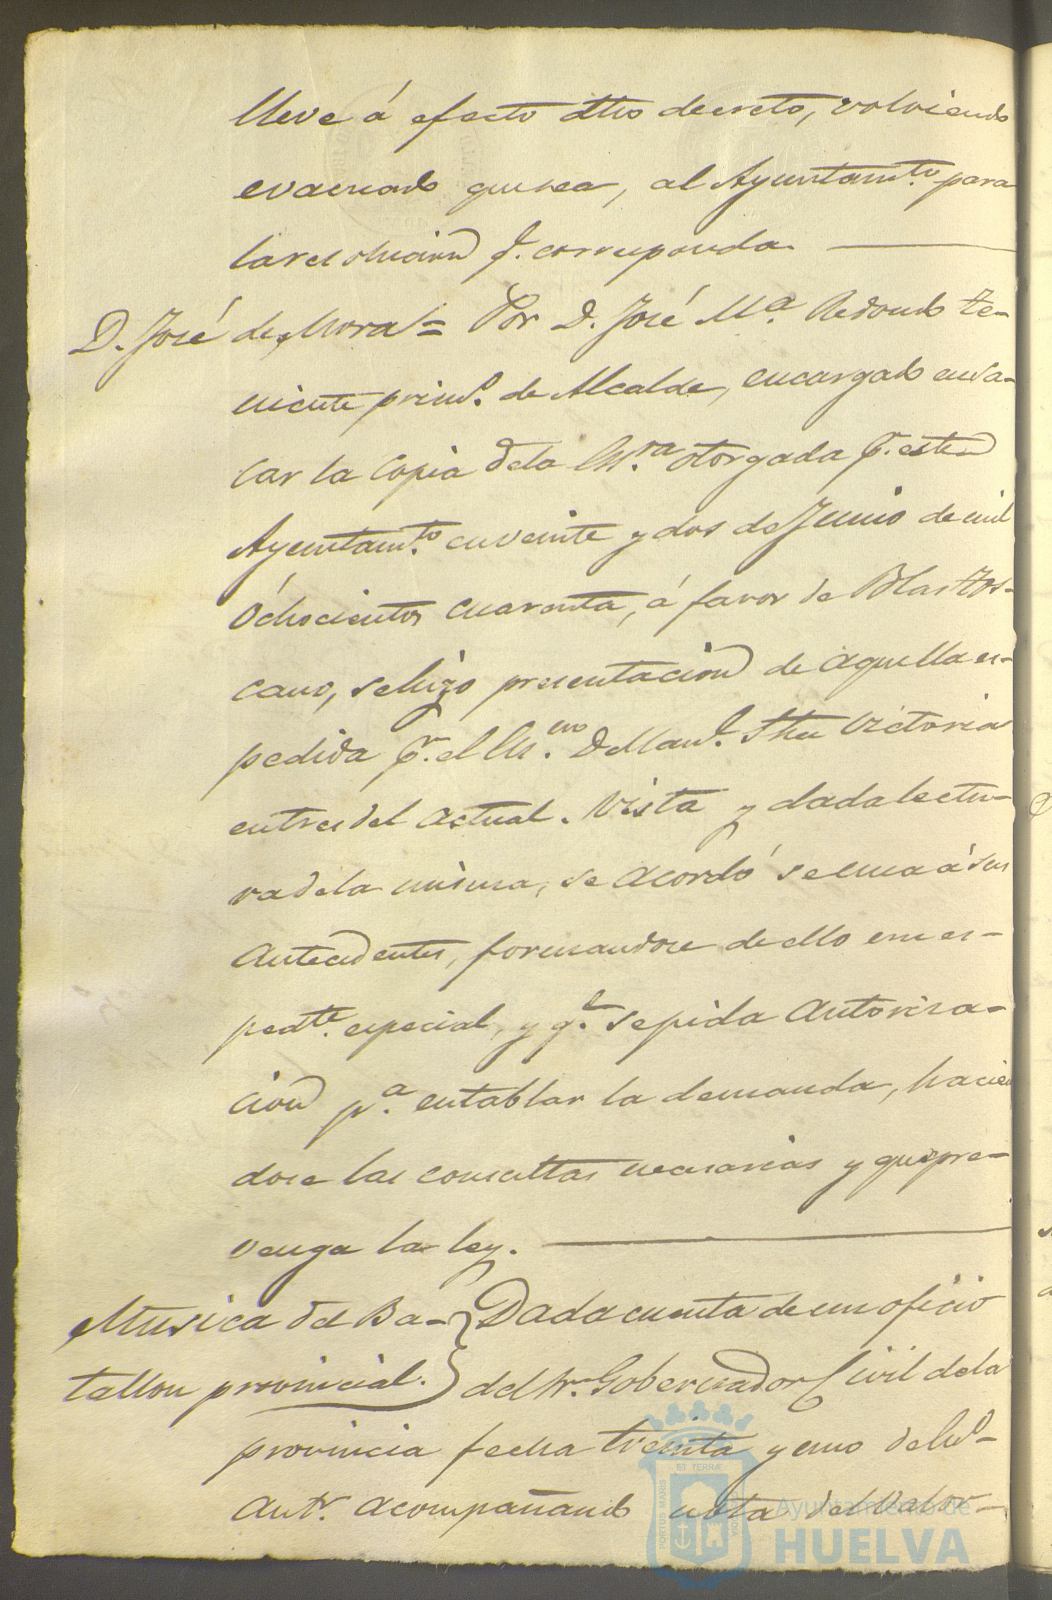 lleve á efecto dho decreto, volviendo
evacuado que sea, al Ayuntamto. para
la resolucion q. corresponda.
D. José de Mora = Por D. José Ma. Redondo te-
niente prinl. de Alcalde, encargado en sa-
car la copia de la Essra. otorgada pr. este
Ayuntamto. en veinte y dos de Junio de mil
Ochocientos cuarenta, á favor de Blas Tos-
cano, se hizo presentacion de aquella es-
pedida pr. el Esno. D. Manl. Victoria
en tres del actual. Vista y dada lectu-
ra de la misma, se acordó se una á sus
antecedentes, formandose de ello un es-
pedte. especial, y qe. se pida autoriza-
cion pa. entablar la demanda, hacien
dose las consultas necesarias y que pre-
venga la ley.
Musica del Ba- } Dada cuenta de un oficio
tallon provincial. } del Sr. Gobernador Civil de la
provincia fecha treinta y uno del
antr. acompañando nota del valor
Ayuntamiento de
HUELVA
PORTUS MARIS
ET TERRAE